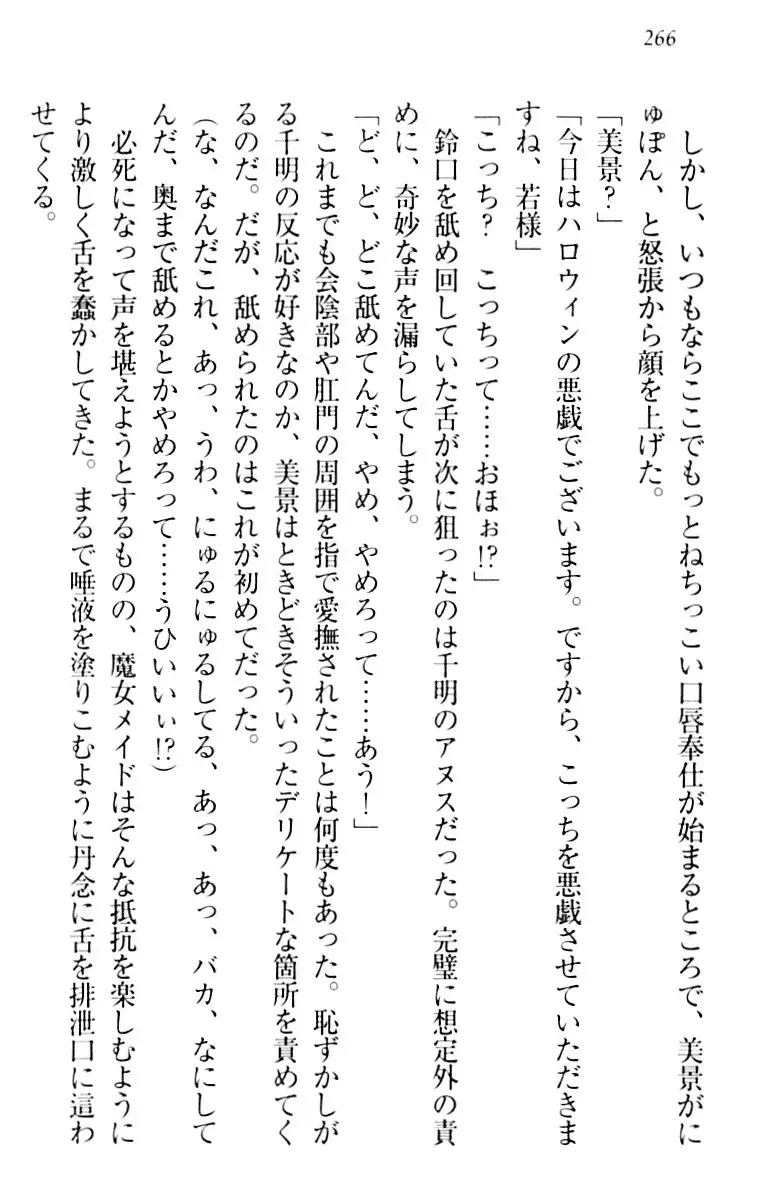 266
しかし、いつもならここでもっとねちっこい口唇奉仕が始まるところで、美景がに
ゅぽん、と怒張から顔を上げた。
「美景?」
「今日はハロウィンの悪戯でございます。ですから、こっちを悪戯させていただきま
すね、若様」
「こっち? こっちって……おほぉ!?」
鈴口を舐め回していた舌が次に狙ったのは千明のアヌスだった。完璧に想定外の責
めに、奇妙な声を漏らしてしまう。
「ど、ど、どこ舐めてんだ、やめ、やめろって……あう!」
これまでも会陰部や肛門の周囲を指で愛撫されたことは何度もあった。恥ずかしが
る千明の反応が好きなのか、美景はときどきそういったデリケートな箇所を責めてく
るのだ。だが、舐められたのはこれが初めてだった。
(な、なんだこれ、あっ、うわ、にゅるにゅるしてる、あっ、あっ、バカ、なにして
んだ、奥まで舐めるとかやめろって……うひいいぃ!?)
必死になって声を堪えようとするものの、魔女メイドはそんな抵抗を楽しむように
より激しく舌を蠢かしてきた。まるで唾液を塗りこむように丹念に舌を排泄口に這わ
せてくる。